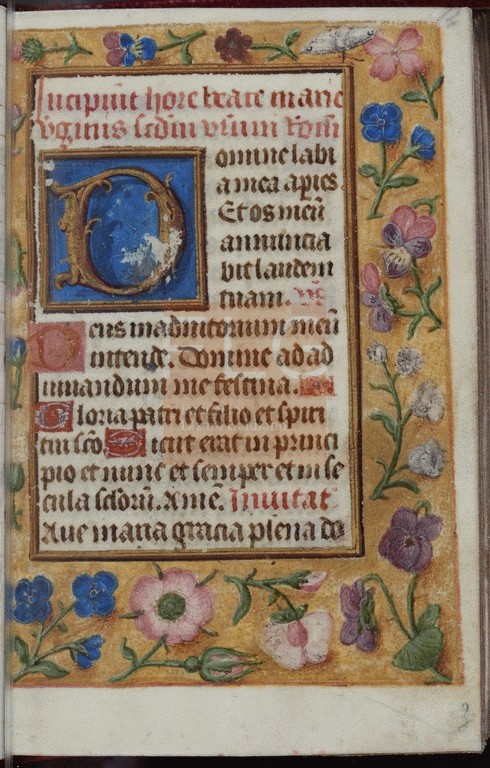 Incipiũt hore beate marie
v̓ginis scdm vsum romã
Domine labi
a mea aperies
Et os meũ
annuncia
bit laudem
tuam. Vs̃
Deus in adiutorium meũ
intende. Domine ad ad
iuuandum me festina.
Gloria patri et filio et spiri
tui scõ Sicut erat in princi
pio et nunc et semper et in se
cula sclorũ. Amẽ. Inuitat
Aue maria gracia plena do